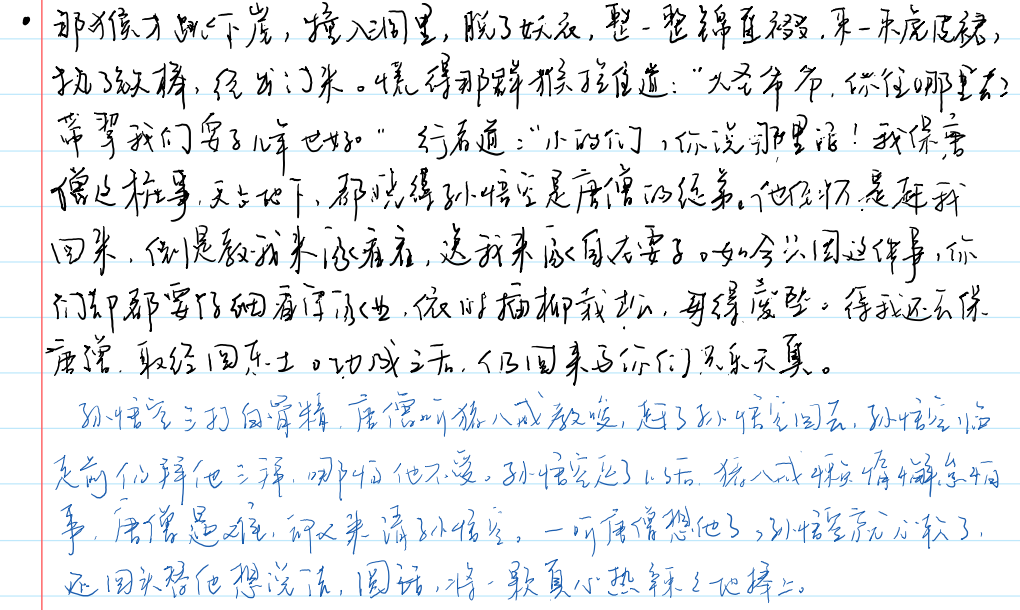 • 那猴才跳下崖,撞入洞里,脱了妖衣,整一整锦直裰,束一束虎皮裙,
执了铁棒,径出门来。慌得那群猴拦住道:“大圣爷爷,你往哪里去?
带挈我们耍子几年也好。” 行者道:“小的们,你说哪里话!我保唐
僧这桩事,天上地下,都晓得孙悟空是唐僧的徒弟。他倒不是赶我
回来,倒是教我来家看看,送我来家自在耍子。如今只因这件事,你
们却都要仔细看守家业,依时插柳栽松,毋得废坠。待我还去保
唐僧,取经回东土。功成之后,仍回来与你们共乐天真。
孙悟空三打白骨精,唐僧听猪八戒教唆,赶了孙悟空回去,孙悟空临
走前仍拜他三拜,哪怕他不受。孙悟空走了以后,猪八戒
事,唐僧遇难,却又来请孙悟空。一听唐僧想他了,孙悟空就心软了,
还回头替他想说法,圆话,将一颗真心热辣辣地捧上。